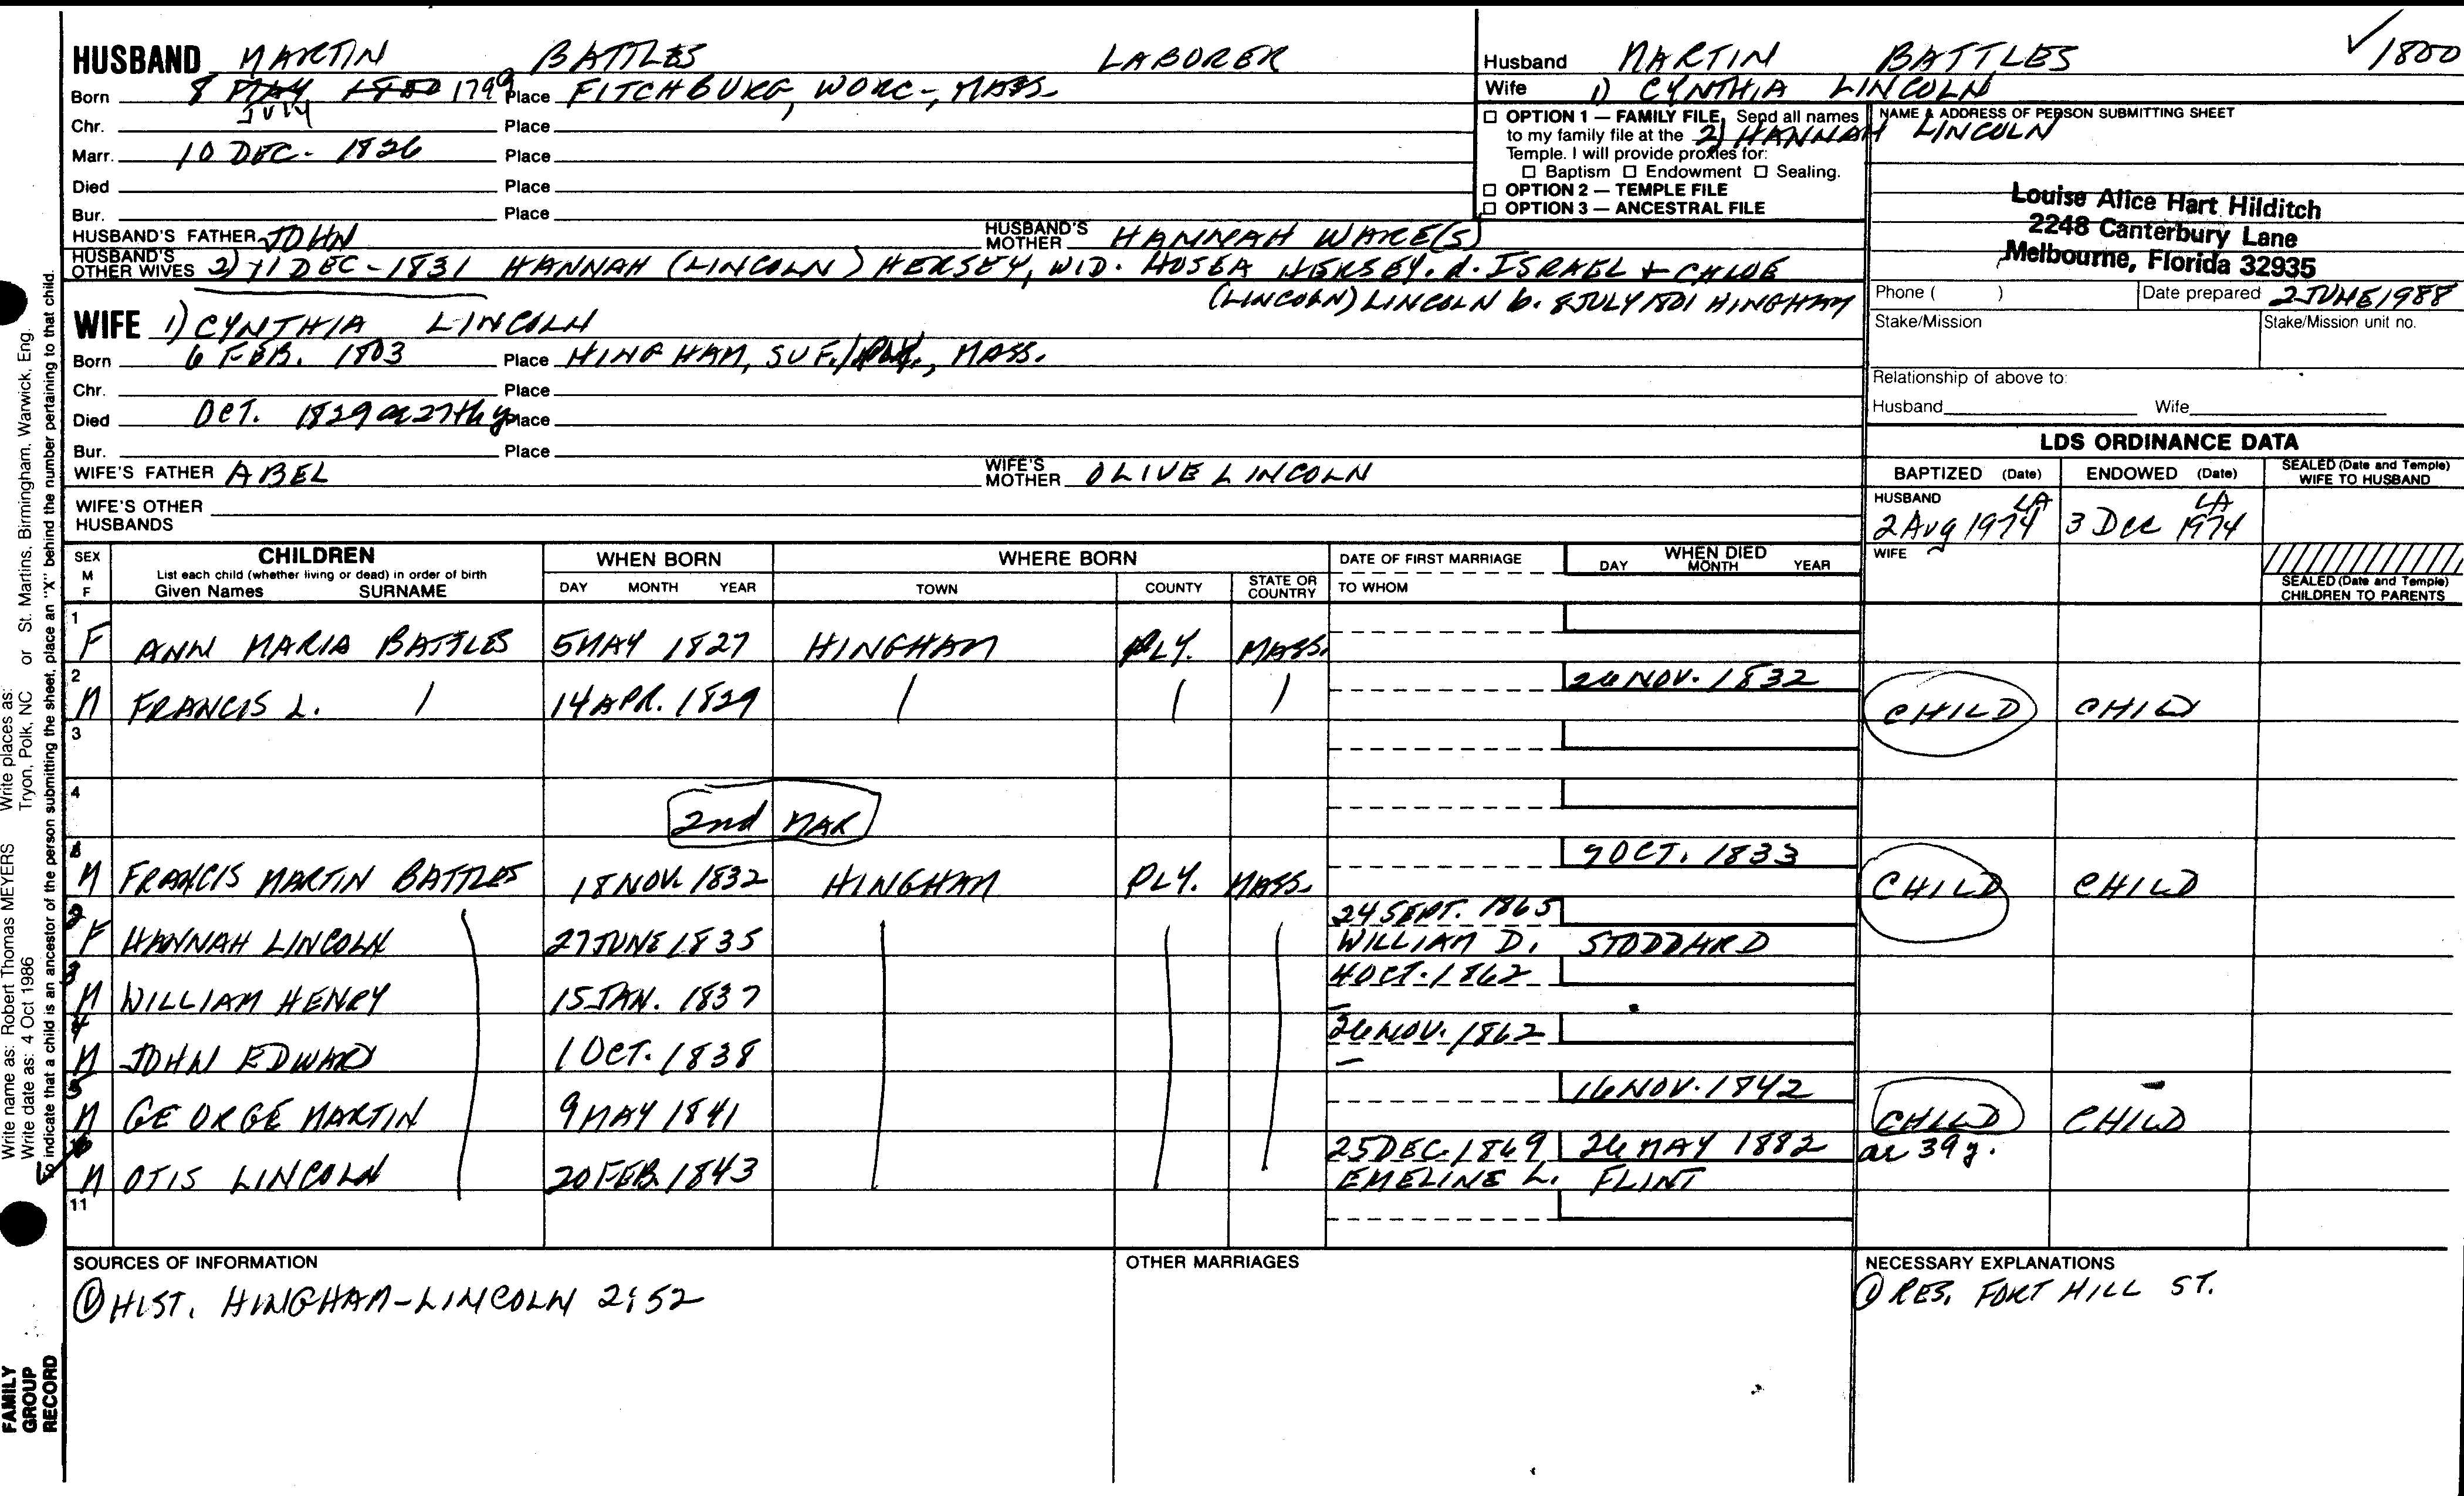 HUSBAND MARTIN BATTLES LABORER
Born 8 MAY 1800 1799 JULY Place FITCHBURG, WORC-, MASS-
Chr. Place
Marr. 10 DEC- 1826 Place
Died Place
Bur. Place
HUSBAND'S FATHER JOHN HUSBAND'S MOTHER HANNAH WARE(S)
HUSBAND'S OTHER WIVES 2) 11 DEC-1831 HANNAH (LINCOLN) HERSEY, WID. HOSEA HERSEY. d. ISRAEL + CHLOE
(LINCOLN) LINCOLN b. 8 JULY 1801 HINGHAM
WIFE 1) CYNTHIA LINCOLN
Born 6 FEB. 1803 Place HINGHAM, SUF./PLY., MASS.
Chr. Place
Died OCT. 1829 ae 27th y Place
Bur. Place
WIFE'S FATHER ABEL WIFE'S MOTHER OLIVE LINCOLN
WIFE'S OTHER HUSBANDS
Husband MARTIN BATTLES ✓1800
Wife 1) CYNTHIA LINCOLN
2) HANNAH LINCOLN
☐ OPTION 1 — FAMILY FILE, Send all names
to my family file at the
Temple. I will provide proxies for:
☐ Baptism ☐ Endowment ☐ Sealing.
☐ OPTION 2 — TEMPLE FILE
☐ OPTION 3 — ANCESTRAL FILE
NAME & ADDRESS OF PERSON SUBMITTING SHEET
Louise Alice Hart Hilditch
2248 Canterbury Lane
Melbourne, Florida 32935
Phone ( ) Date prepared 2 JUNE 1988
Stake/Mission Stake/Mission unit no.
Relationship of above to:
Husband Wife
LDS ORDINANCE DATA
BAPTIZED (Date) ENDOWED (Date) SEALED (Date and Temple) WIFE TO HUSBAND
HUSBAND 2 Aug 1974 LA 3 Dec 1974 LA
WIFE
SEALED (Date and Temple) CHILDREN TO PARENTS
SEX M F CHILDREN List each child (whether living or dead) in order of birth Given Names SURNAME
WHEN BORN DAY MONTH YEAR WHERE BORN TOWN COUNTY STATE OR COUNTRY
DATE OF FIRST MARRIAGE TO WHOM WHEN DIED DAY MONTH YEAR
1 F ANN MARIA BATTLES 5 MAY 1827 HINGHAM PLY. MASS.
2 M FRANCIS L. 14 APR. 1829 26 NOV. 1832 CHILD CHILD
3
4
2nd MAR
M FRANCIS MARTIN BATTLES 18 NOV. 1832 HINGHAM PLY. MASS. 9 OCT. 1833 CHILD CHILD
2 F HANNAH LINCOLN 27 JUNE 1835 24 SEPT. 1865 WILLIAM D. STODDARD
3 M WILLIAM HENRY 15 JAN. 1837 4 OCT. 1862 —
4 M JOHN EDWARD 1 OCT. 1838 26 NOV. 1862 —
5 M GEORGE MARTIN 9 MAY 1841 16 NOV. 1842 CHILD CHILD
6 M OTIS LINCOLN 20 FEB. 1843 25 DEC. 1869 EMELINE L. FLINT 26 MAY 1882 ae 39 y.
11
SOURCES OF INFORMATION
① HIST. HINGHAM-LINCOLN 2:52
OTHER MARRIAGES
NECESSARY EXPLANATIONS
① RES. FORT HILL ST.
Write places as: Tryon, Polk, NC or St. Martins, Birmingham, Warwick, Eng.
Write name as: Robert Thomas MEYERS
Write date as: 4 Oct 1986
To indicate that a child is an ancestor of the person submitting the sheet, place an "X" behind the number pertaining to that child.
FAMILY
GROUP
RECORD